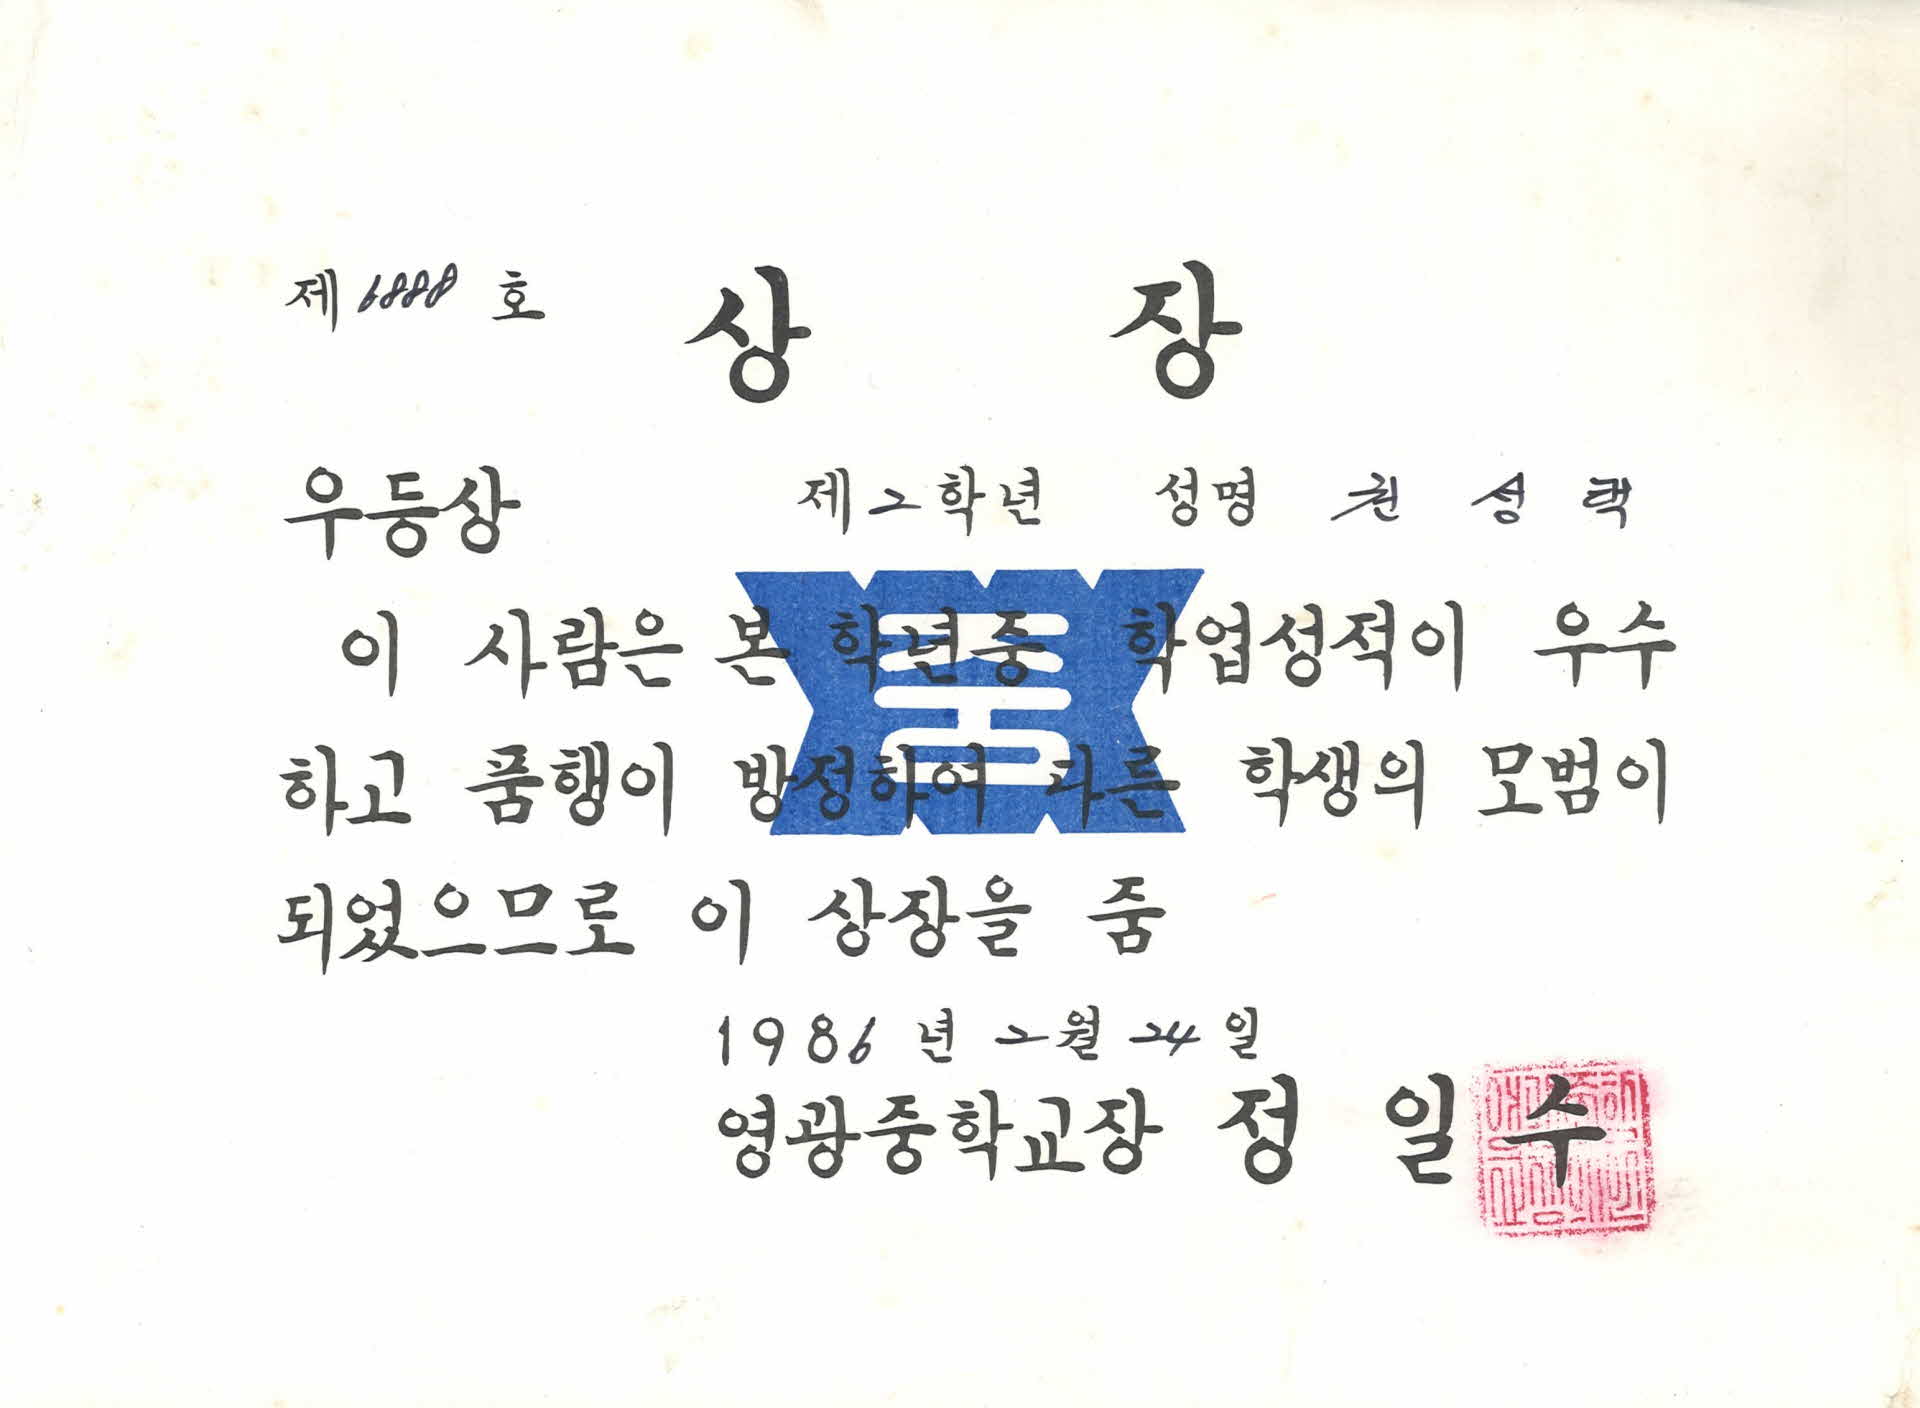 제 6888 호
상 장
우등상 제 2 학년 성명 권 성 택
이 사람은 본 학년중 학업성적이 우수
하고 품행이 방정하여 다른 학생의 모범이
되었으므로 이 상장을 줌
1986 년 2 월 24 일
영광중학교장 정 일 수